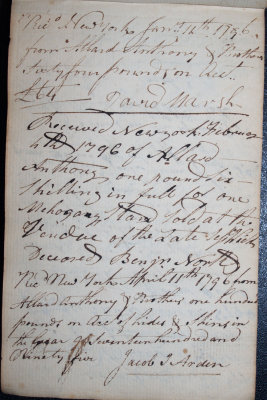 Recd New York Janry 12th 1796
from Allard Anthony & Brother
Sixty four pounds on Acc.
£64
David Marsh
Received New york Februar
4th 1796 of Allard
Anthony one pound six
Shilling in full of one
Mahogany Stand Sold at the
Vendue of the Late
Deceased Benjn North
Rec New York April 11th 1796 from
Allard Anthony & Brother one hundred
pounds on Acc of hides & Skins in
the year of Seventeen hundred and
Ninety five
Jacob J Arden